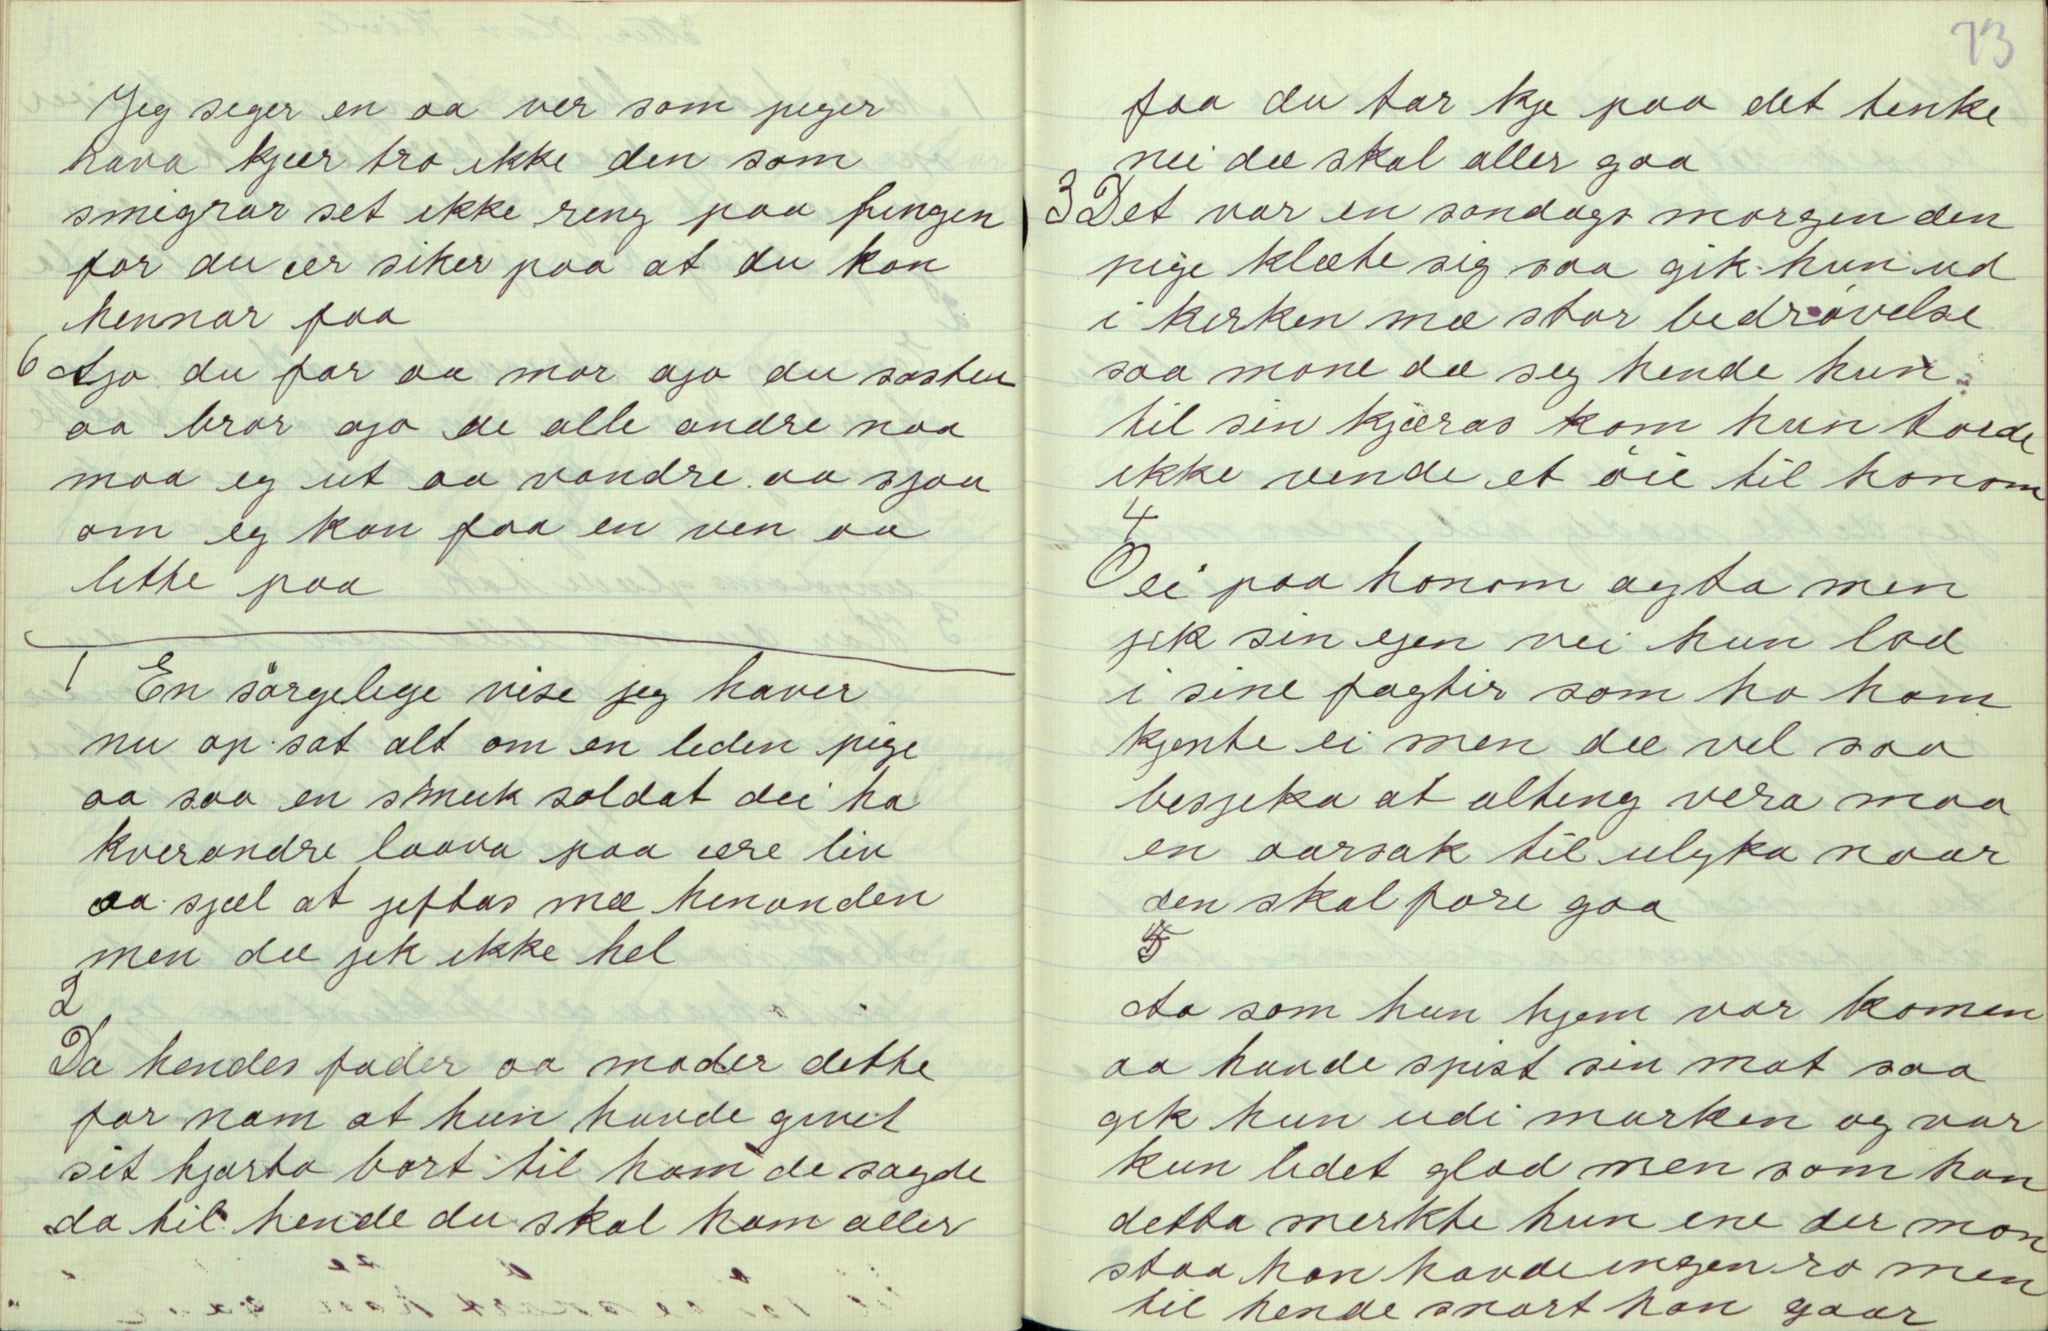 Jeg seger en aa ver som peger
hava kjær tro ikke den som
smigrar set ikke reng paa fingen
for du ær siker paa at du kan
hennar faa
6 Ajo du far aa mor ajo du søsten
aa bror ajo de alle andre naa
maa eg ut aa vandre aa sjaa
om eg kan faa en ven aa
lette paa
1 En sörgelige vise jeg haver
nu op sat alt om en leden pige
aa saa en smuk soldat dei ha
kverandre laava paa ære liv
aa sjæl at jeftas mæ henanden
men dæ jek ikke hel
2
Da hendes fader aa moder dette
for nam at hun havde givet
sit hjarta bort til ham de sagde
da til hende du skal ham aller
73
faa du tar kje paa det tenke
nei dæ skal aller gaa
3 Det var en søndags morgen den
pige klæte sig saa gik hun ud
i kerken mæ stor bedrøvelse
saa mone dæ seg hende hun
til sin kjæras kom hun torde
ikke vende et öie til honom
4
O ei paa honom agta men
jek sin egen vei hun lod
i sine fagtir som ho ham
kjente ei men dæ vel saa
besjeka at alteng vera maa
en aarsak til ulyka naar
den skal fore gaa
5
Aa som hun hjem var komen
aa havde spist sin mat saa
gek hun udi marken og var
kun lidet glad men som han
detta merkte hun ene der mon
staa han havde ingen ro men
til hende snart han gaar